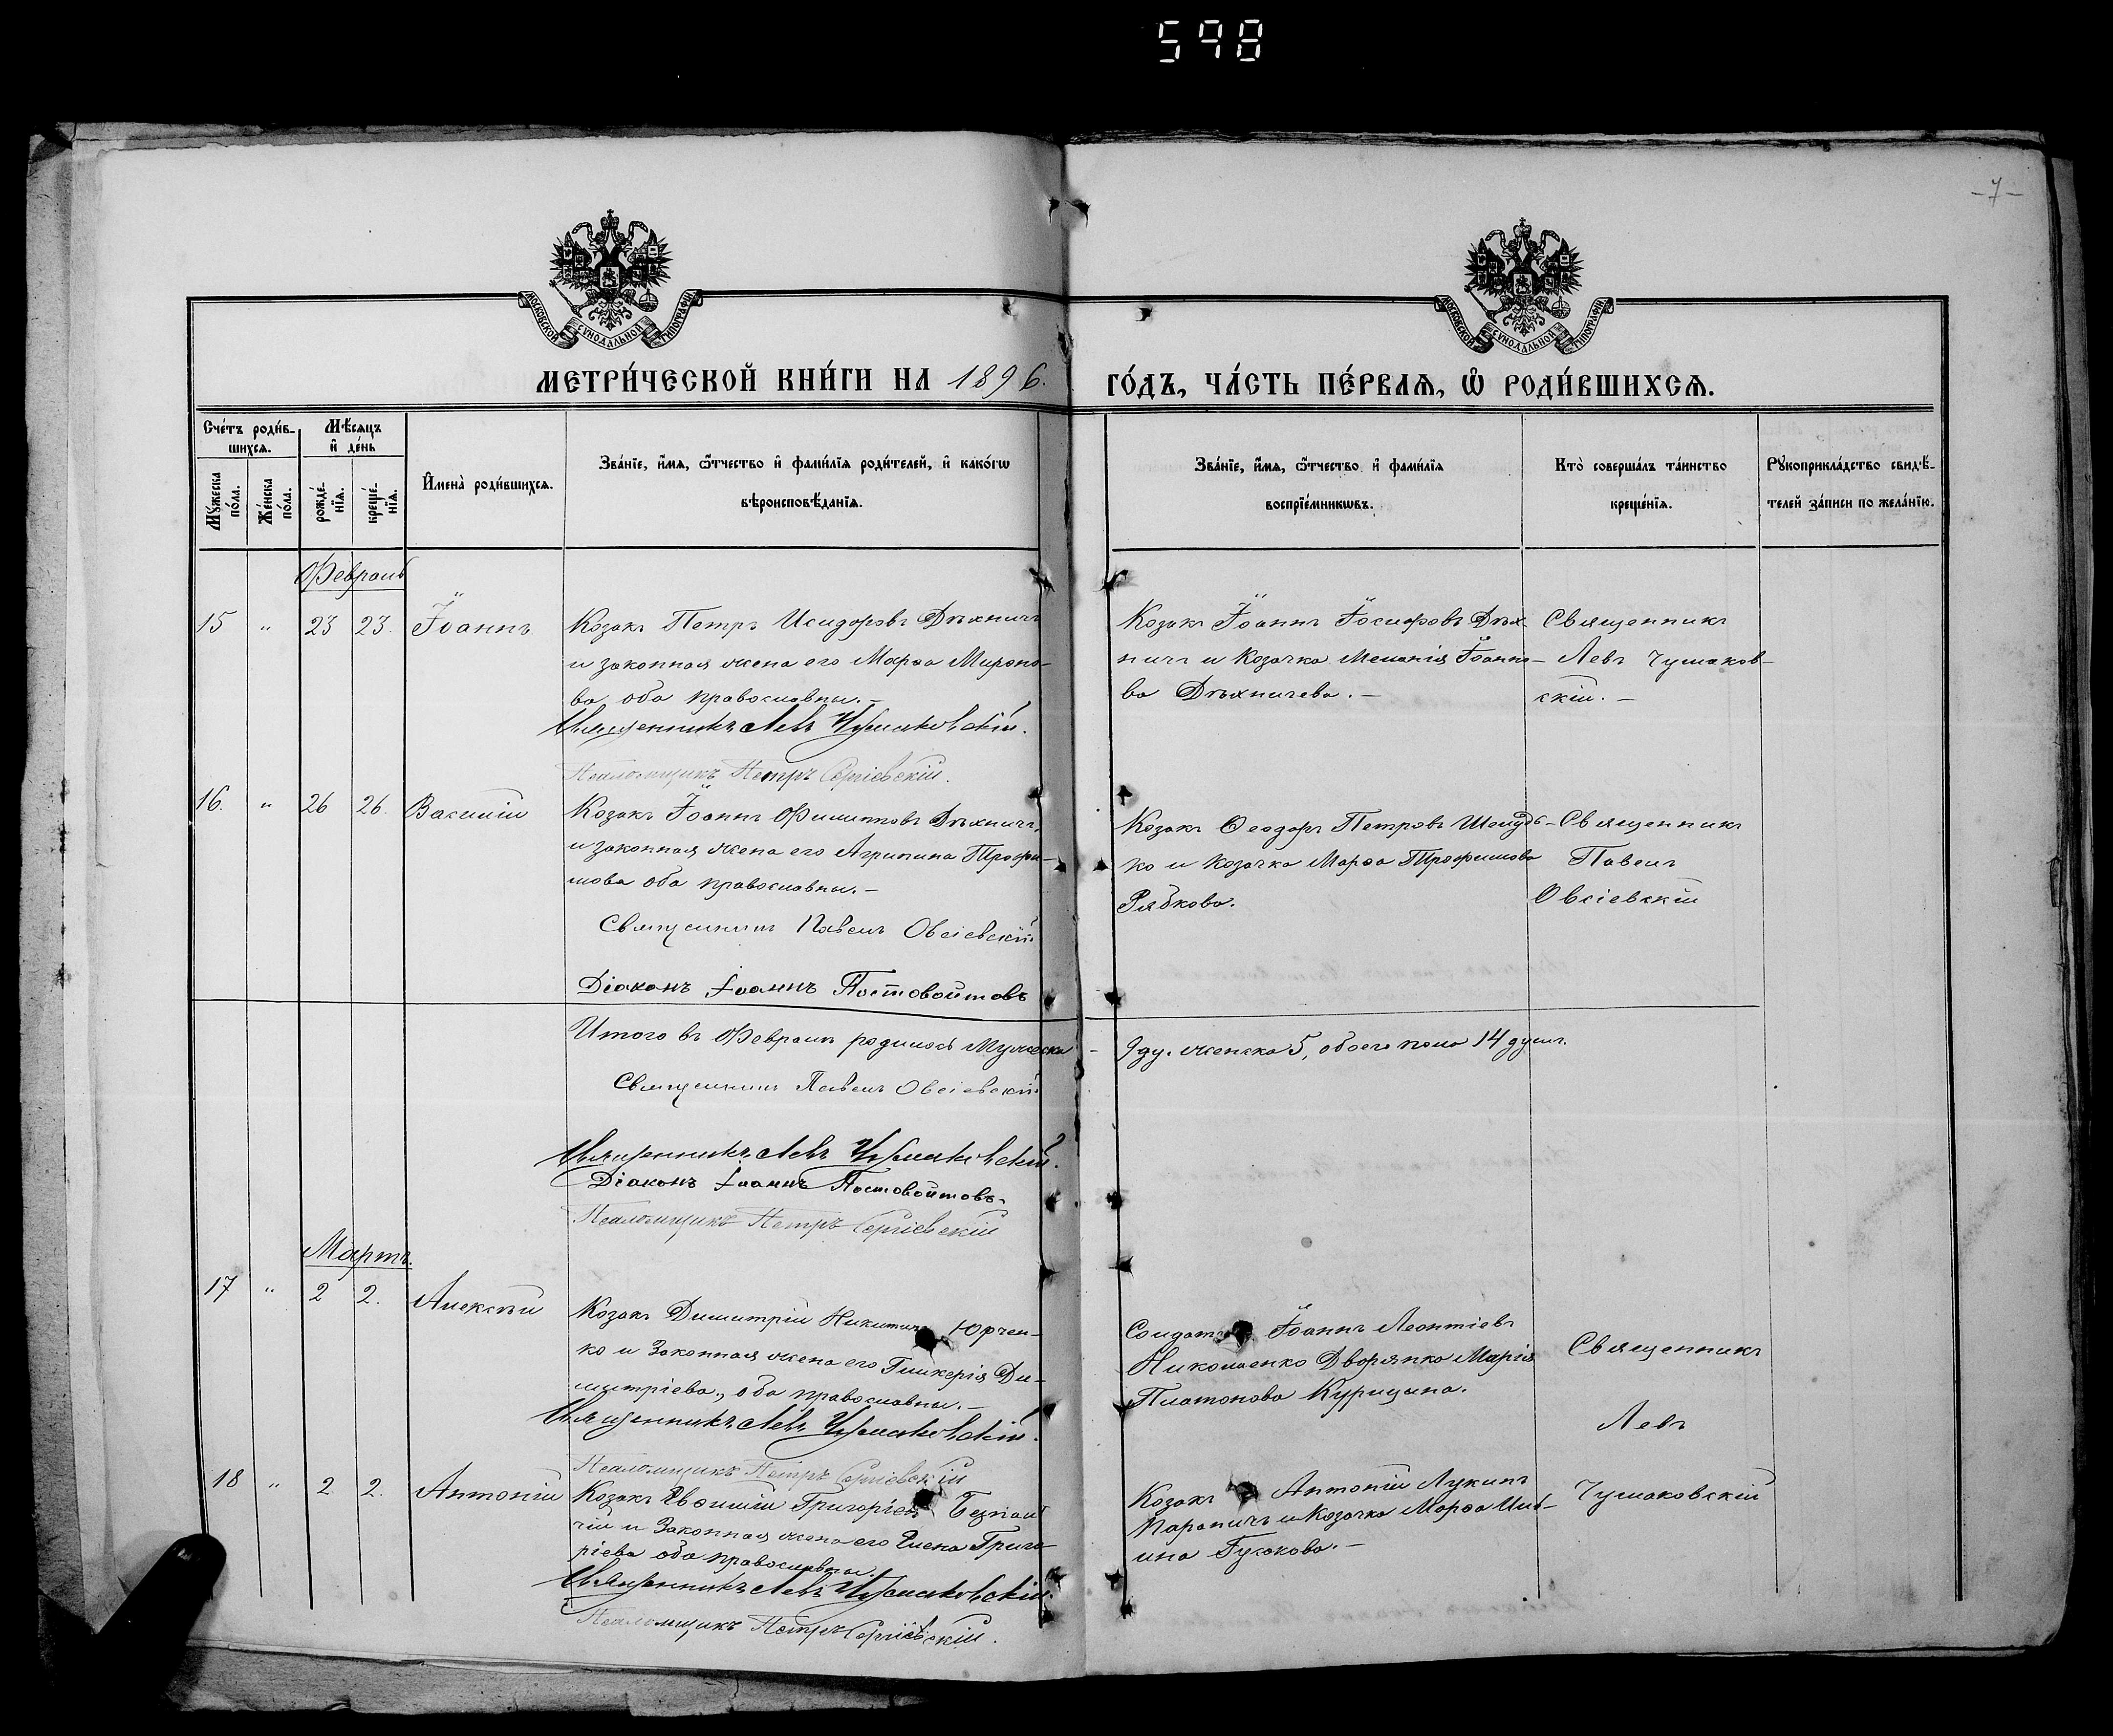 598
-7-
МОСКОВСКОЙ СѴНОДАЛЬНОЙ ТИПОГРАФІИ
МОСКОВСКОЙ СѴНОДАЛЬНОЙ ТИПОГРАФІИ
МЕТРИ́ЧЕСКОЙ КНИ́ГИ НА 1896.
ГО́ДЪ, ЧА́СТЬ ПЕ́РВАѦ, Ѡ҆ РОДИ́ВШИХСѦ.
Сче́тъ роди́в-
шихсѧ.
Мѣ́сѧцъ
и҆ де́нь
Мꙋ́жеска
по́ла.
Же́нска
по́ла.
рожде́-
нїѧ.
креще́-
нїѧ.
И҆мена̀ роди́вшихсѧ.
Зва́нїе, и҆́мѧ, ѻ҆́тчество и҆ фами́лїѧ роди́телей, и҆ како́гѡ
вѣроисповѣ́данїѧ.
Зва́нїе, и҆́мѧ, ѻ҆́тчество и҆ фами́лїѧ
воспрїе́мникѡвъ.
Кто̀ соверша́лъ та́инство
креще́нїѧ.
Рꙋкоприкла́дство свидѣ́-
телей за́писи по жела́нїю.
Февраль
15 " 23 23. Іоаннъ
Козакъ Петръ Исидоровъ Дѣхничъ
и законная жена его Марѳа Мироно-
ва, оба православны. –
Священникъ Левъ Чумаковскій.
Псаломщикъ Петръ Сергіевскій.
Козакъ Іоаннъ Іосифовъ Дѣх-
ничъ и Козачка Меланія Іоанно-
ва Дѣхничева. –
Священникъ
Левъ Чумаков-
скій. –
16. " 26 26. Василій
Козакъ Іоаннъ Филипповъ Дѣхничъ,
и законная жена его Агрипина Трофи-
мова оба православны. –
Священникъ Павелъ Овсіевскій
Діаконъ Іоаннъ Постовойтовъ
Козакъ Ѳеодоръ Петровъ Шелудь-
ко и Козачка Марѳа Трофимова
Рябкова.
Священникъ
Павелъ
Овсіевскій
Итого въ Февралѣ родилось Мужеска – 9 ду. женска 5, обоего пола 14 душъ.
Священникъ Павелъ Овсіевскій
Священникъ Левъ Чумаковскій.
Діаконъ Іоаннъ Постовойтовъ.
Псаломщикъ Петръ Сергіевскій
Мартъ.
17 " 2 2. Алексѣй
Козакъ Димитрій Никитинъ Юрчен-
ко и Законная жена его Гликерія Ди-
митріева, оба православны. –
Священникъ Левъ Чумаковскій.
Псаломщикъ Петръ Сергіевскій
Солдатъ Іоаннъ Леонтіевъ
Николаенко Дворянка Марія
Платонова Курицына.
Священникъ
Левъ
Чумаковскій
18 " 2 2. Антоній
Козакъ Григоріевъ
и Законная жена его Елена Григо-
ріева оба православны.
Священникъ Левъ Чумаковскій.
Псаломщикъ Петръ Сергіевскій.
Козакъ Антоній Лукинъ
и Козачка Марѳа Иль-
ина